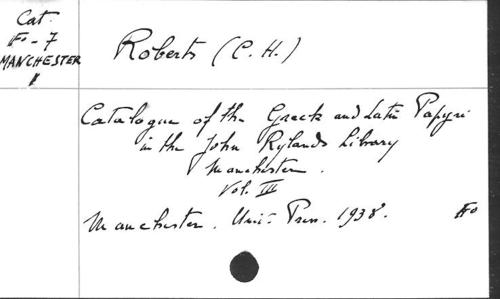 Cat.
Fº - 7
MANCHESTER
Roberts (C. H.)
Catalogue of the Greek and Latin Papyri
in the John Rylands Library
Manchester.
Vol. III
Manchester. Univ. Press. 1938.
Fº